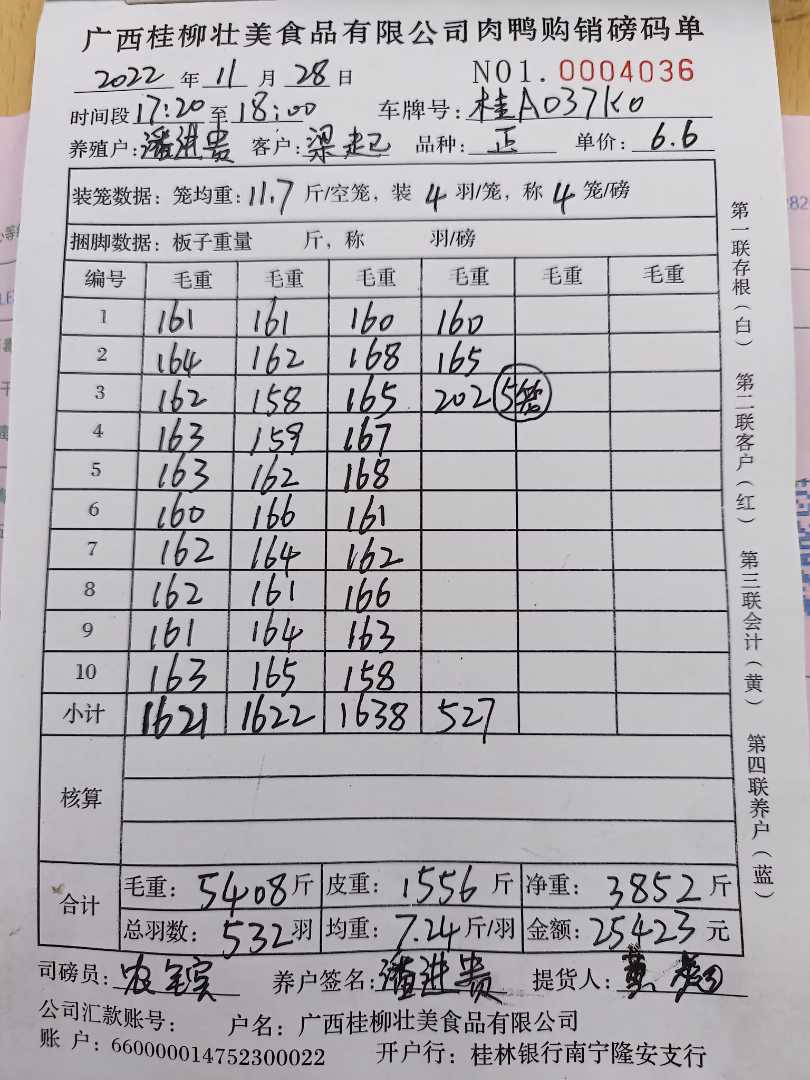 广西桂柳壮美食品有限公司肉鸭购销磅码单
2022 年 11 月 28 日 NO1. 0004036
时间段 17:20 至 18:00 车牌号: 桂A037K0
养殖户: 潘进贵 客户: 梁起 品种: 正 单价: 6.6
装笼数据: 笼均重: 11.7 斤/空笼, 装 4 羽/笼, 称 4 笼/磅
捆脚数据: 板子重量 斤, 称 羽/磅
编号 毛重 毛重 毛重 毛重 毛重 毛重
1 161 161 160 160
2 164 162 168 165
3 162 158 165 202 5笼
4 163 159 167
5 163 162 168
6 160 166 161
7 162 164 162
8 162 161 166
9 161 164 163
10 163 165 158
小计 1621 1622 1638 527
核算
合计 毛重: 5408 斤 皮重: 1556 斤 净重: 3852 斤
总羽数: 532 羽 均重: 7.24 斤/羽 金额: 25423 元
司磅员: 养户签名: 潘进贵 提货人: 黄
公司汇款账号: 户名: 广西桂柳壮美食品有限公司
账 户: 660000014752300022 开户行: 桂林银行南宁隆安支行
第一联存根(白) 第二联客户(红) 第三联会计(黄) 第四联养户(蓝)